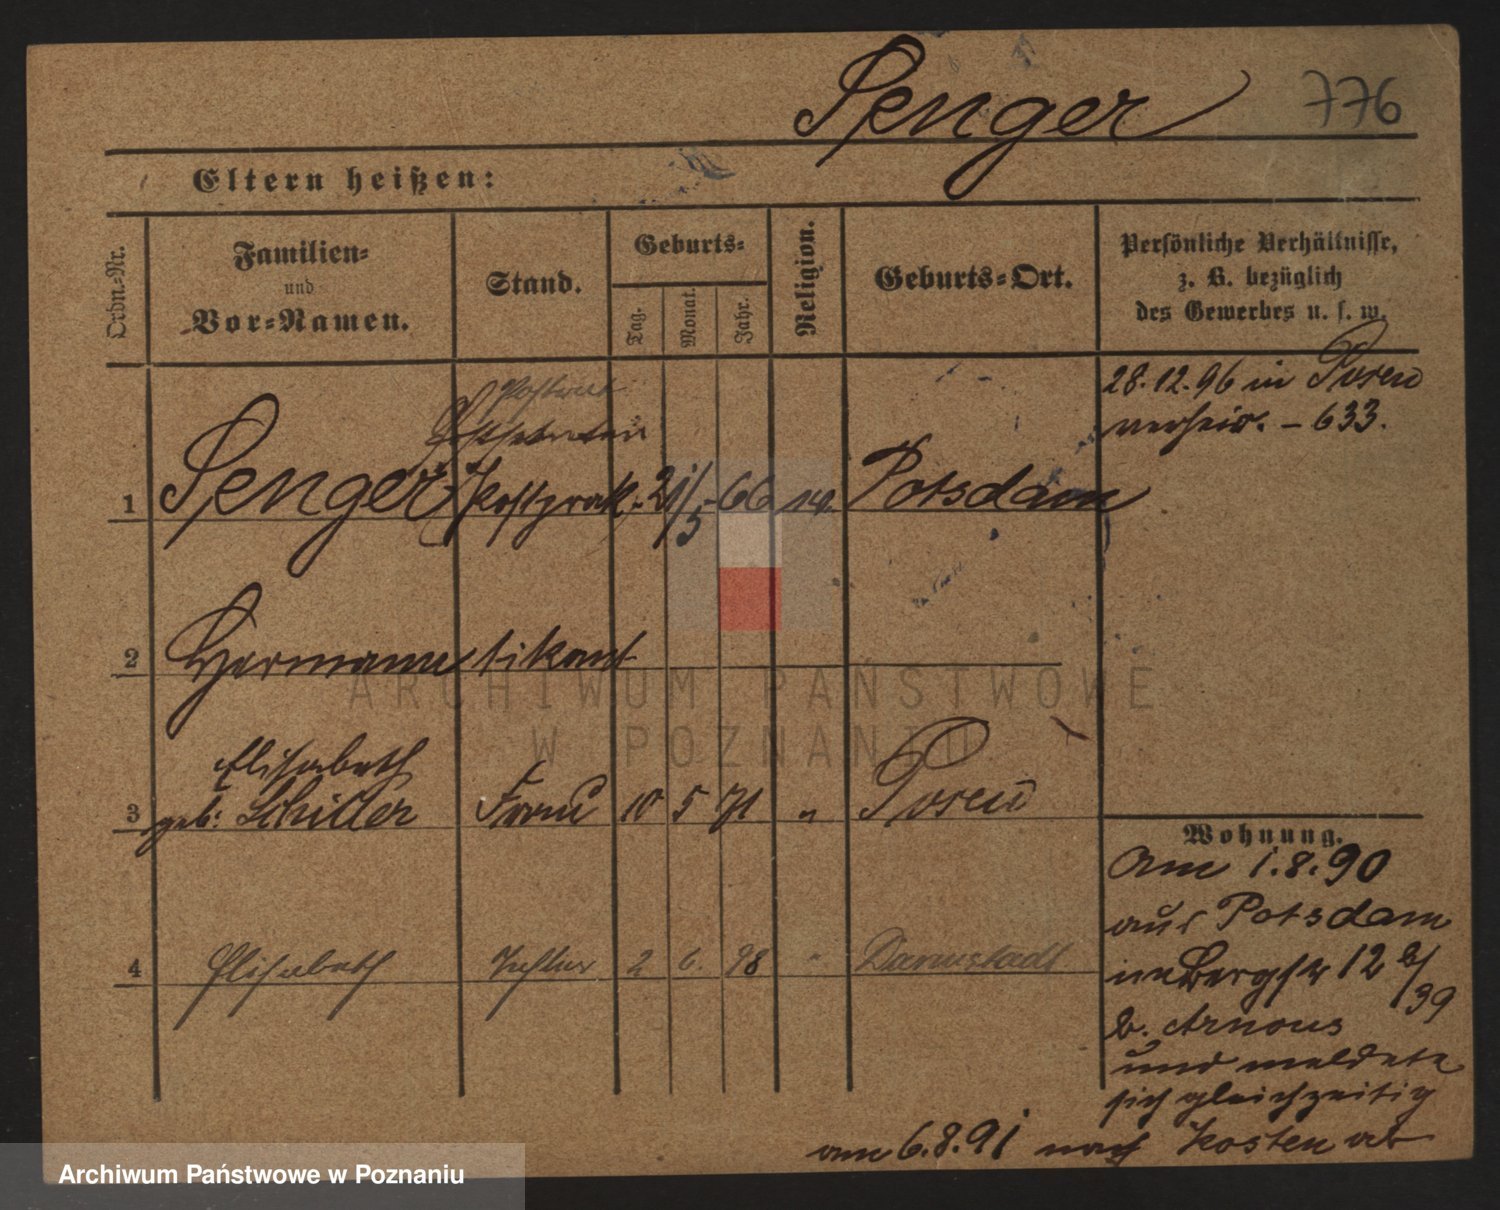 Senger 776
Eltern heißen:
Ordn.-Nr.
Familien-
und
Vor-Namen.
Stand.
Geburts-
Tag.
Monat.
Jahr.
Religion.
Geburts-Ort.
Persönliche Verhältnisse,
z. B. bezüglich
des Gewerbes u. s. w.
28.12.96 in Posen
verheir. – 633.
1 Senger Postprak- 21/5 66 Potsdam
2 Hermann tikant
Elisabeth
3 geb: Schiller Frau 10 5 71 " Posen
4 Elisabeth Tochter 2 6. 98 " Darmstadt
Wohnung.
Am 1.8.90
aus Potsdam
Bergstr 12
39
b. Arnous
und meldete
sich gleichzeitig
am 6.8.91 nach Kosten ab
ARCHIWUM PAŃSTWOWE
W POZNANIU
Archiwum Państwowe w Poznaniu